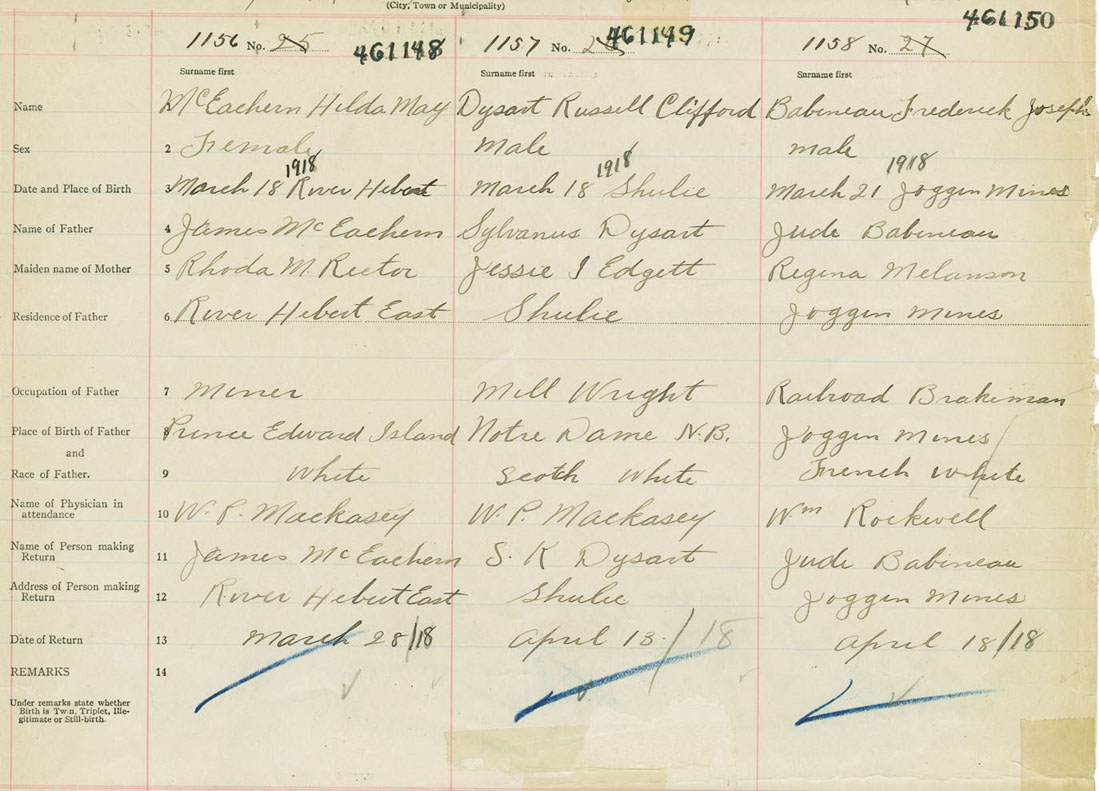 (City, Town or Municipality)
1156 No. 25 461148 1157 No. 461149 1158 No. 27 461150
Surname first Surname first Surname first
Name 1 McEachern Hilda May Dysart Russell Clifford Babineau Frederick Joseph
Sex 2 Female male male
1918 1918 1918
Date and Place of Birth 3 March 18 River Hebert March 18 Shulie March 21 Joggin Mines
Name of Father 4 James McEachern Sylvanus Dysart Jude Babineau
Maiden name of Mother 5 Rhoda M. Rector Jessie I Edgett Regina Melanson
Residence of Father 6 River Hebert East Shulie Joggin Mines
Occupation of Father 7 Miner Mill Wright Railroad Brakeman
Place of Birth of Father 8 Prince Edward Island Notre Dame N.B. Joggin Mines
and
Race of Father. 9 White Scotch White French White
Name of Physician in
attendance 10 W. P. Mackasey W. P. Mackasey Wm Rockwell
Name of Person making
Return 11 James McEachern S. K Dysart Jude Babineau
Address of Person making
Return 12 River Hebert East Shulie Joggin Mines
Date of Return 13 March 28/18 April 13/18 April 18/18
REMARKS 14
Under remarks state whether
Birth is Twin, Triplet, Ille-
gitimate or Still-birth.